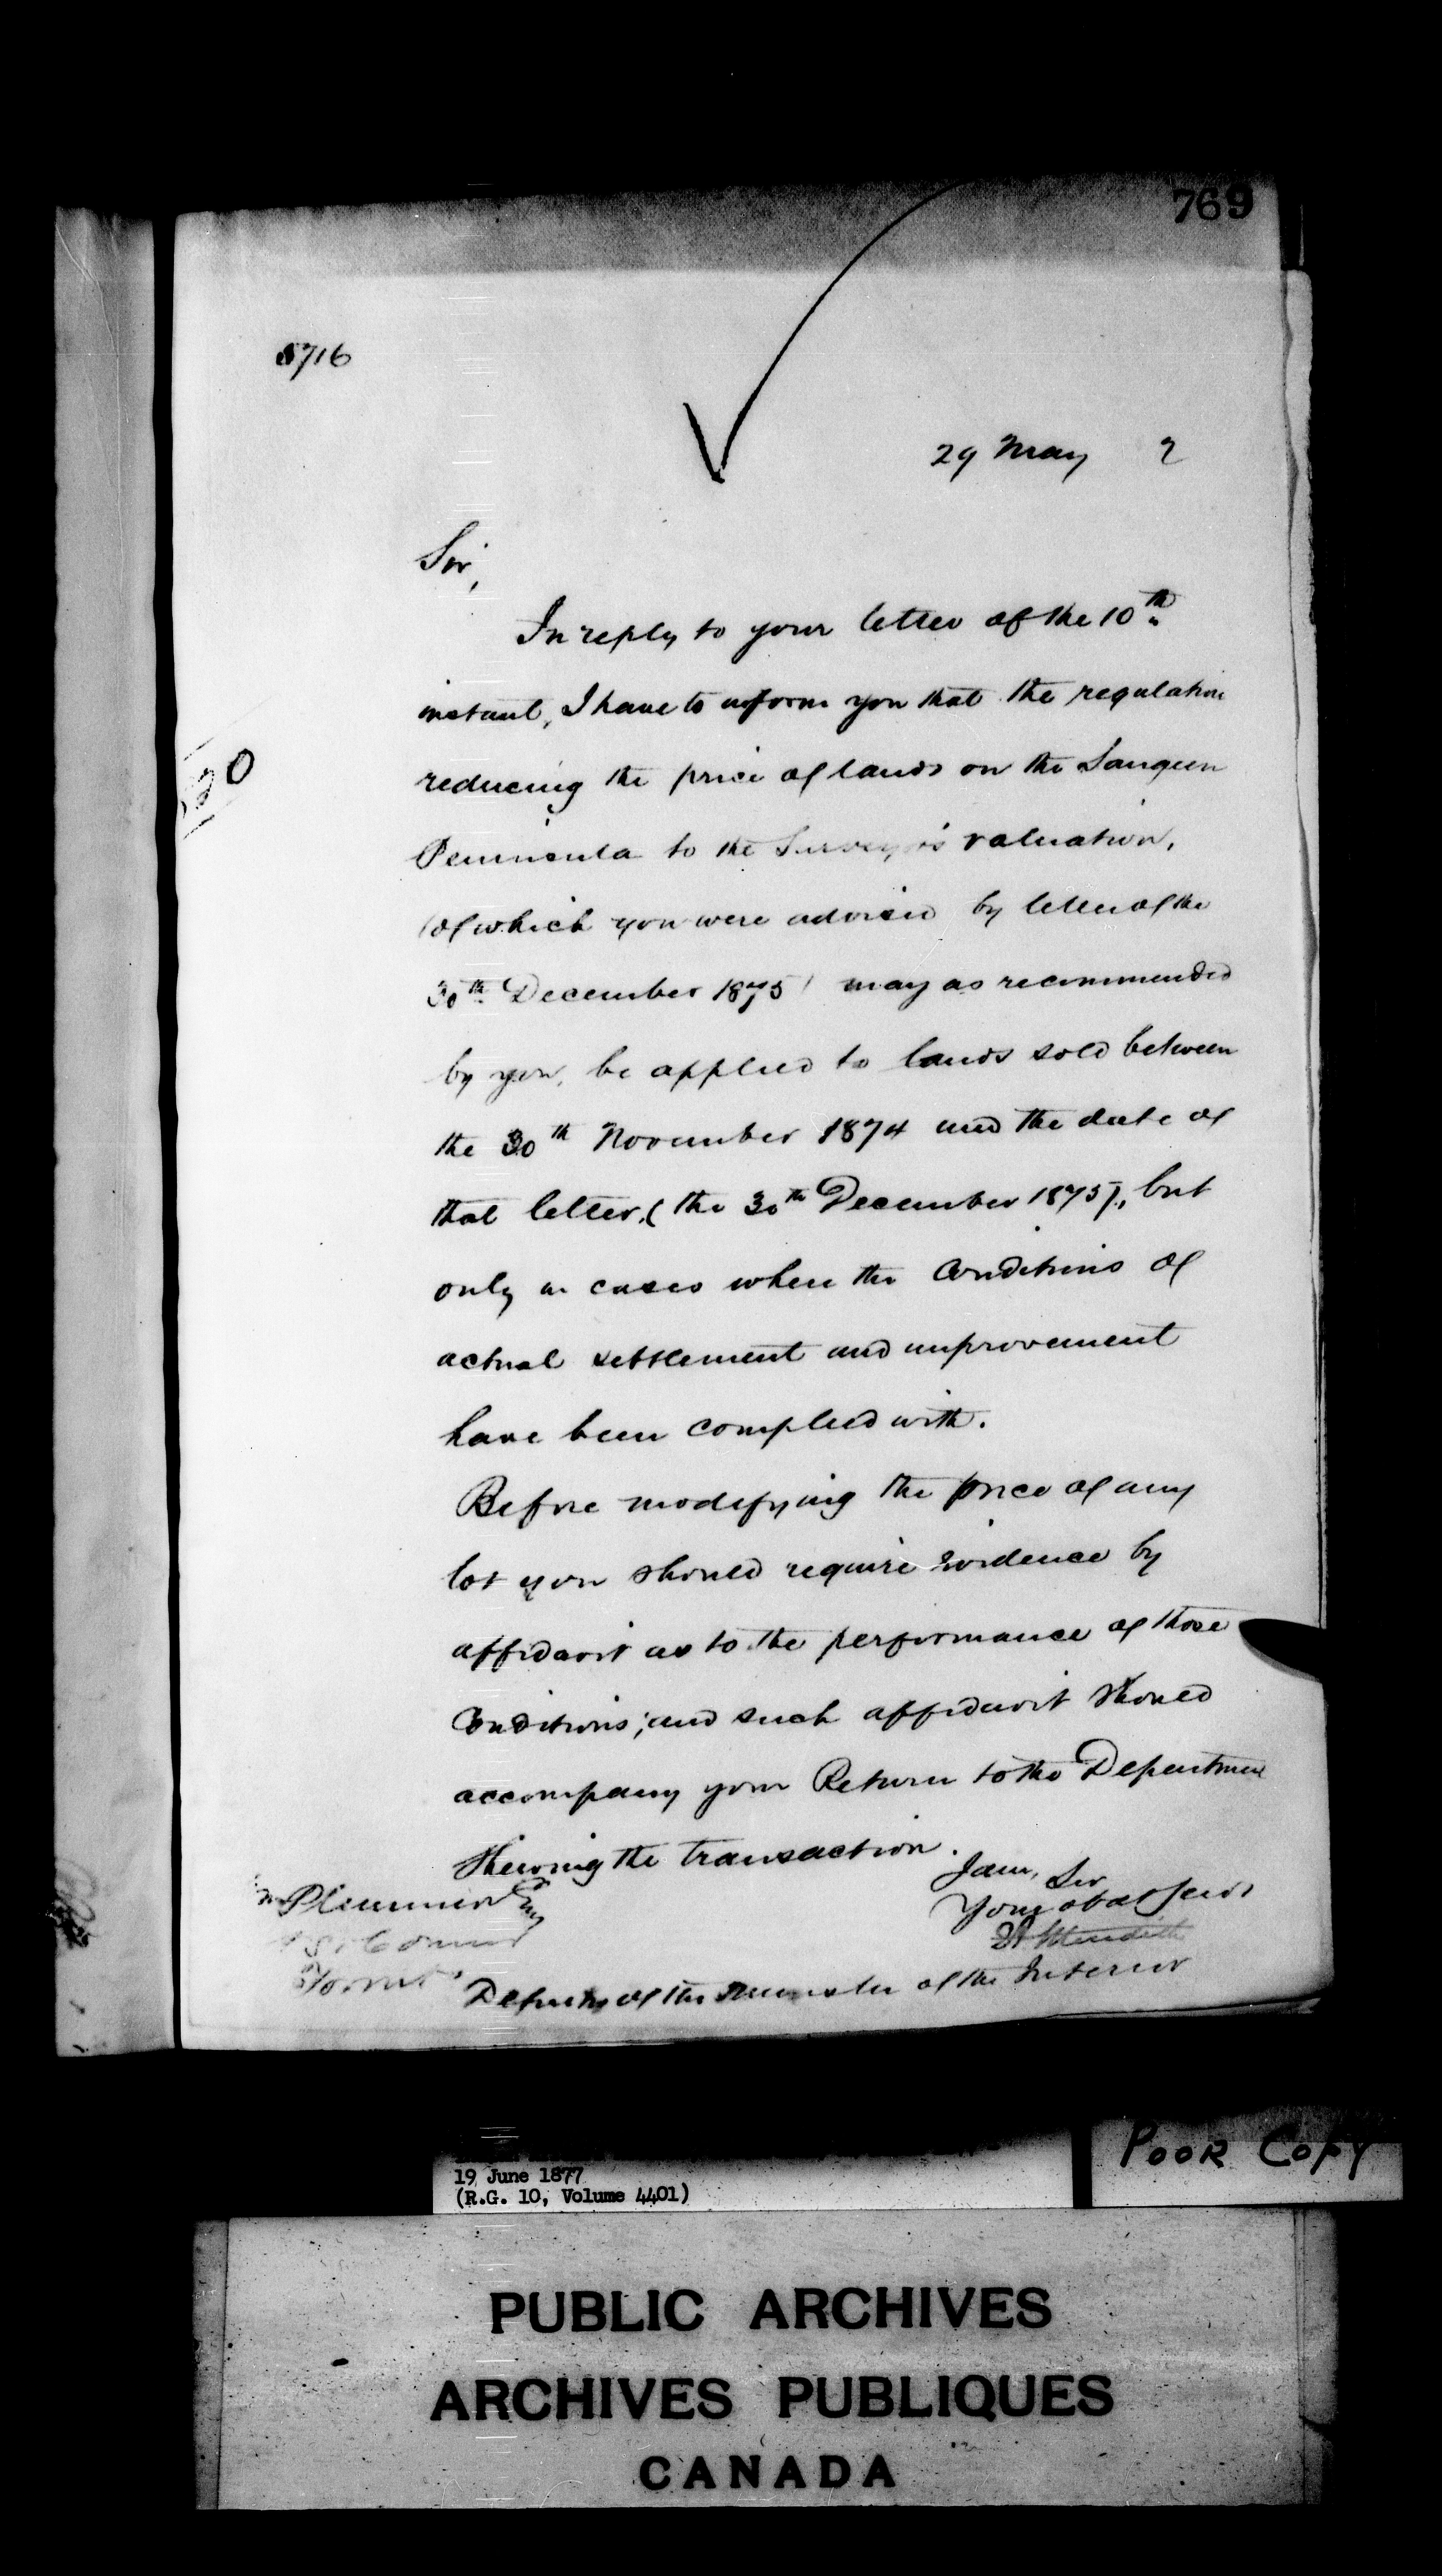 769
5716
29 May 7
Sir,
In reply to your letter of the 10th
instant, I have to inform you that the regulation
reducing the price of lands on the Saugeen
Peninsula to the Surveyor's valuation,
(of which you were advised by letter of the
30th December 1875) may as recommended
by you, be applied to lands sold between
the 30th November 1874 and the date of
that letter, (the 30th December 1875), but
only in cases where the Conditions of
actual settlement and improvement
have been complied with.
Before modifying the price of any
lot you should require evidence by
affidavit as to the performance of those
Conditions; and such affidavit should
accompany your Return to the Department
Shewing the transaction.
I am, Sir
Your obdt Servt
Meredith
Deputy of the Minister of the Interior
Wm Plummer Esq
Toronto
19 June 1877
(R.G. 10, Volume 4401)
POOR COPY
PUBLIC ARCHIVES
ARCHIVES PUBLIQUES
CANADA